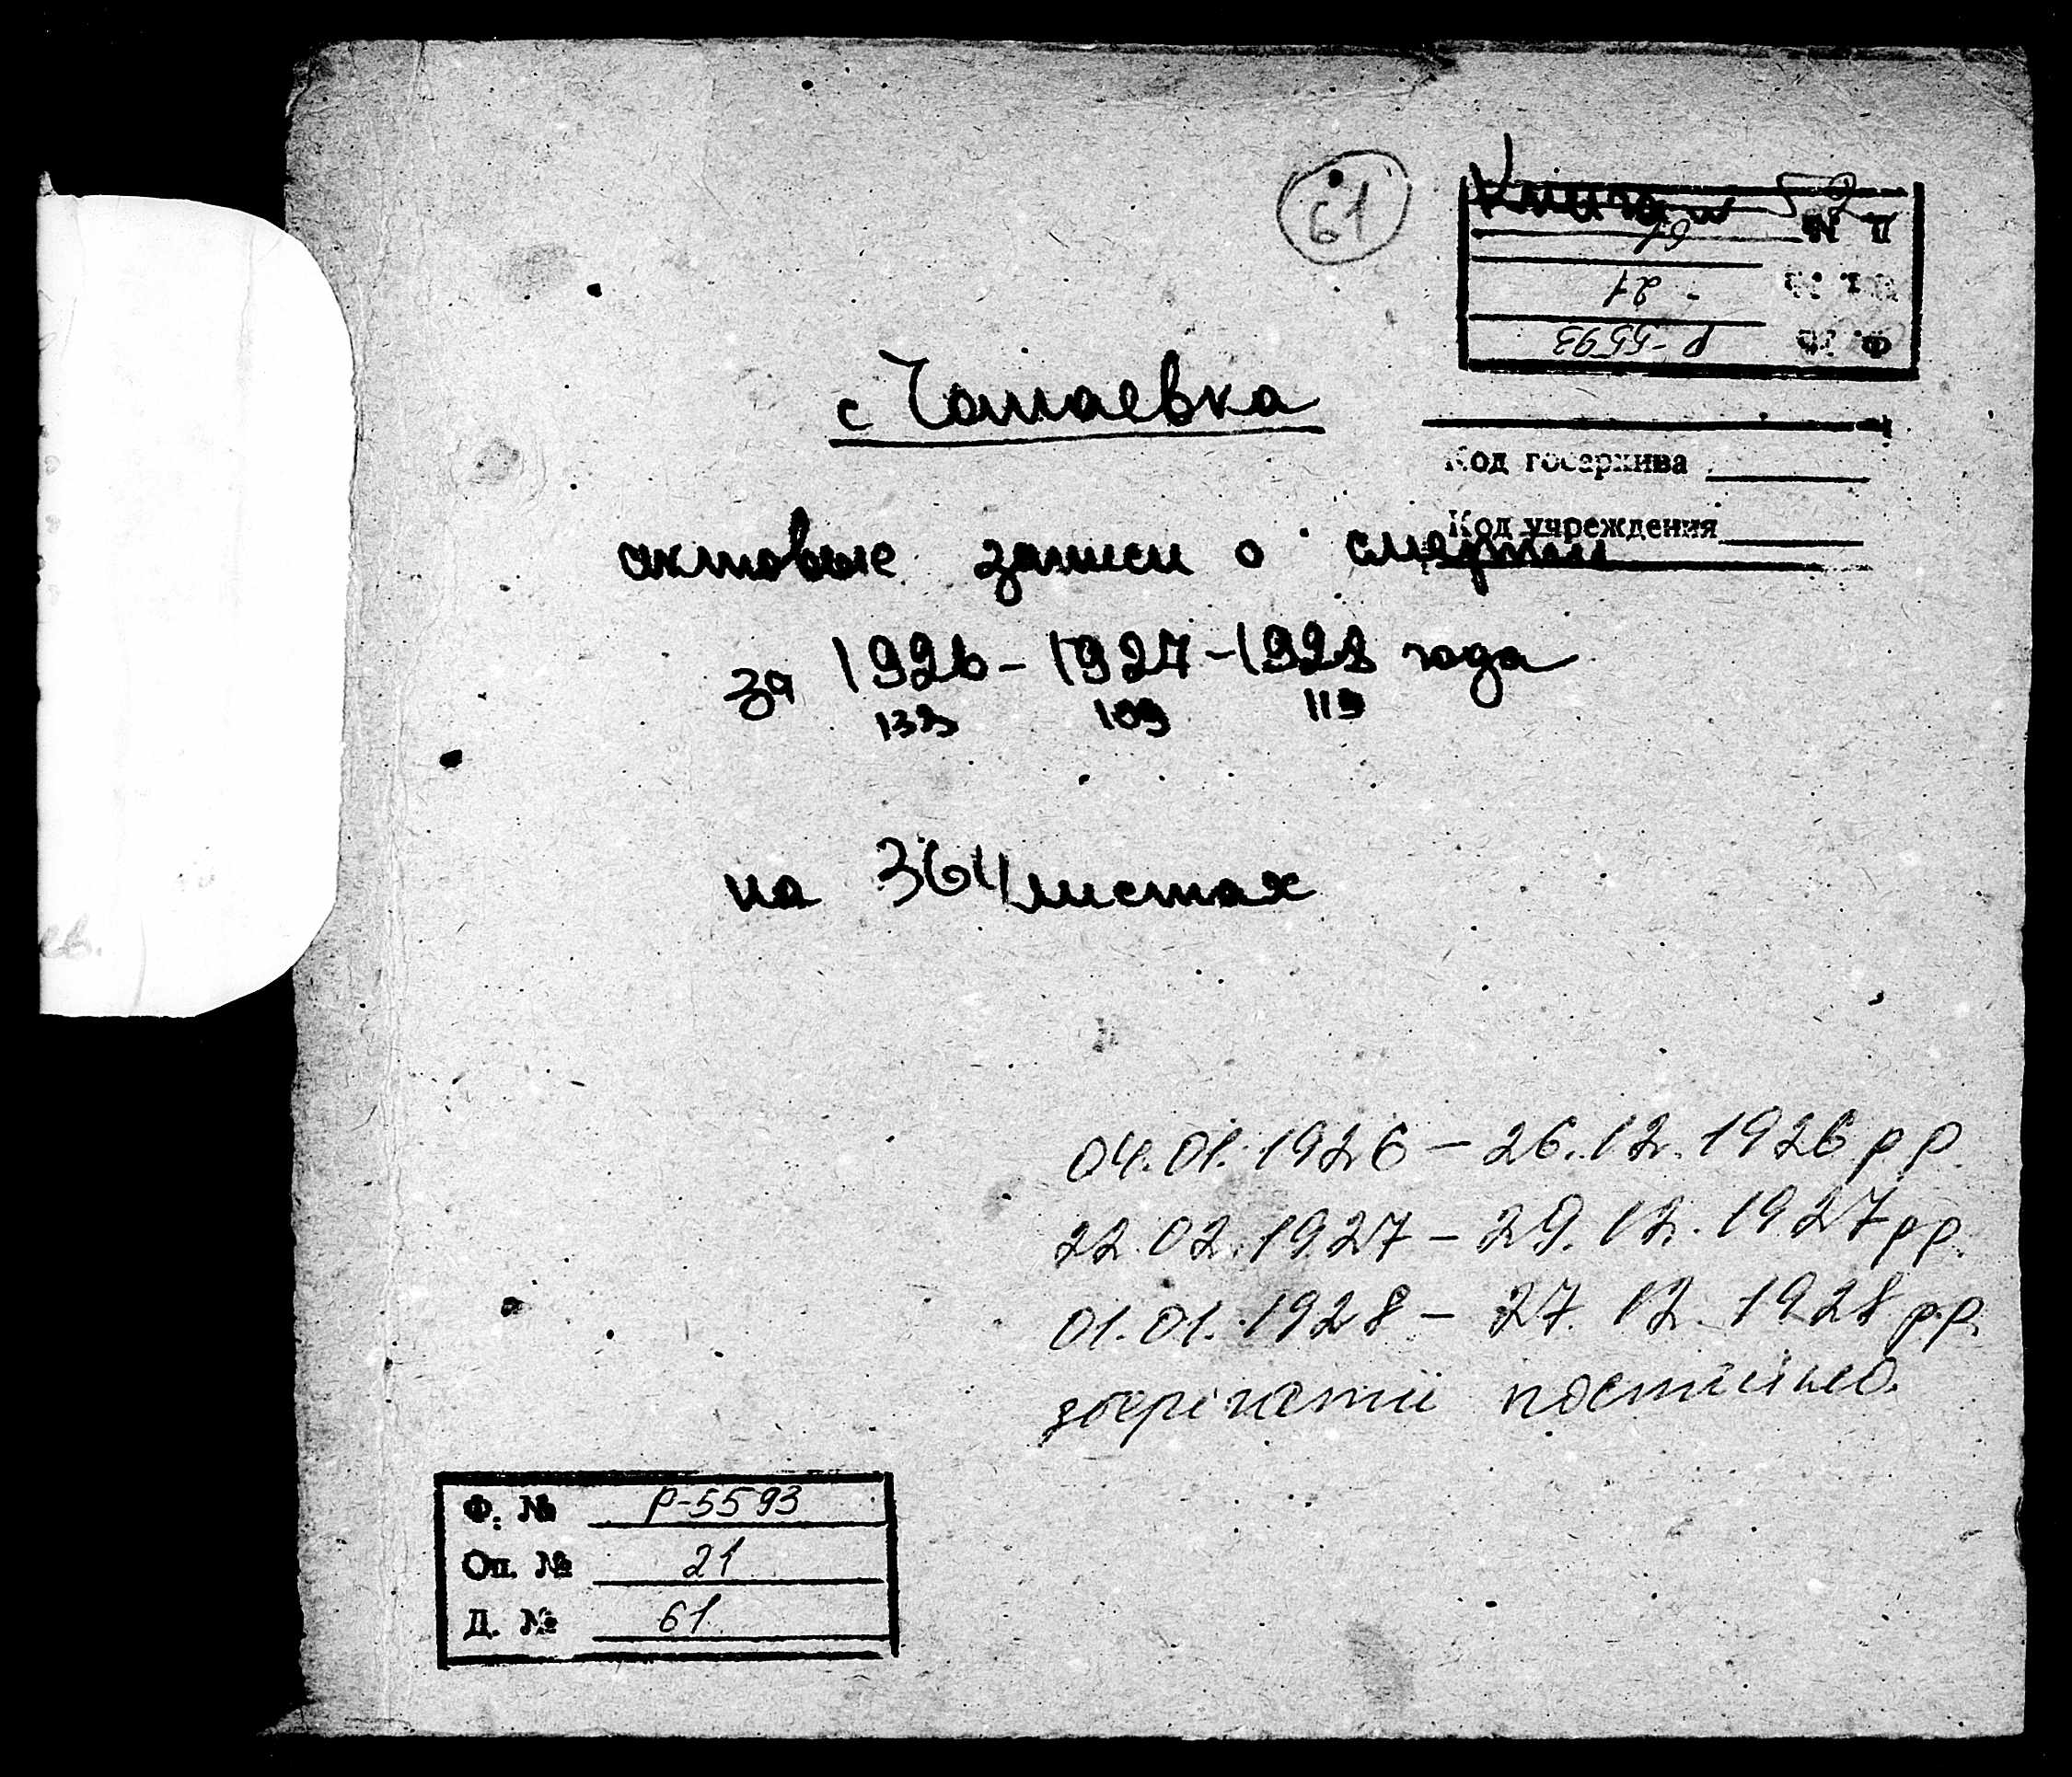 61
Книга №
Д. № 61
Оп. № 21
Ф. № Р-5593
с Томаевка
Код госархива
Код учреждения
актовые записи о смерти
за 1926 - 1927 - 1928 года
133 109 119
на 364 листах
04.01.1926 - 26.12.1926 рр.
22.02.1927 - 29.12.1927 рр.
01.01.1928 - 27.12.1928 р.р.
зберігати постійно.
Ф. № Р-5593
Оп. № 21
Д. № 61